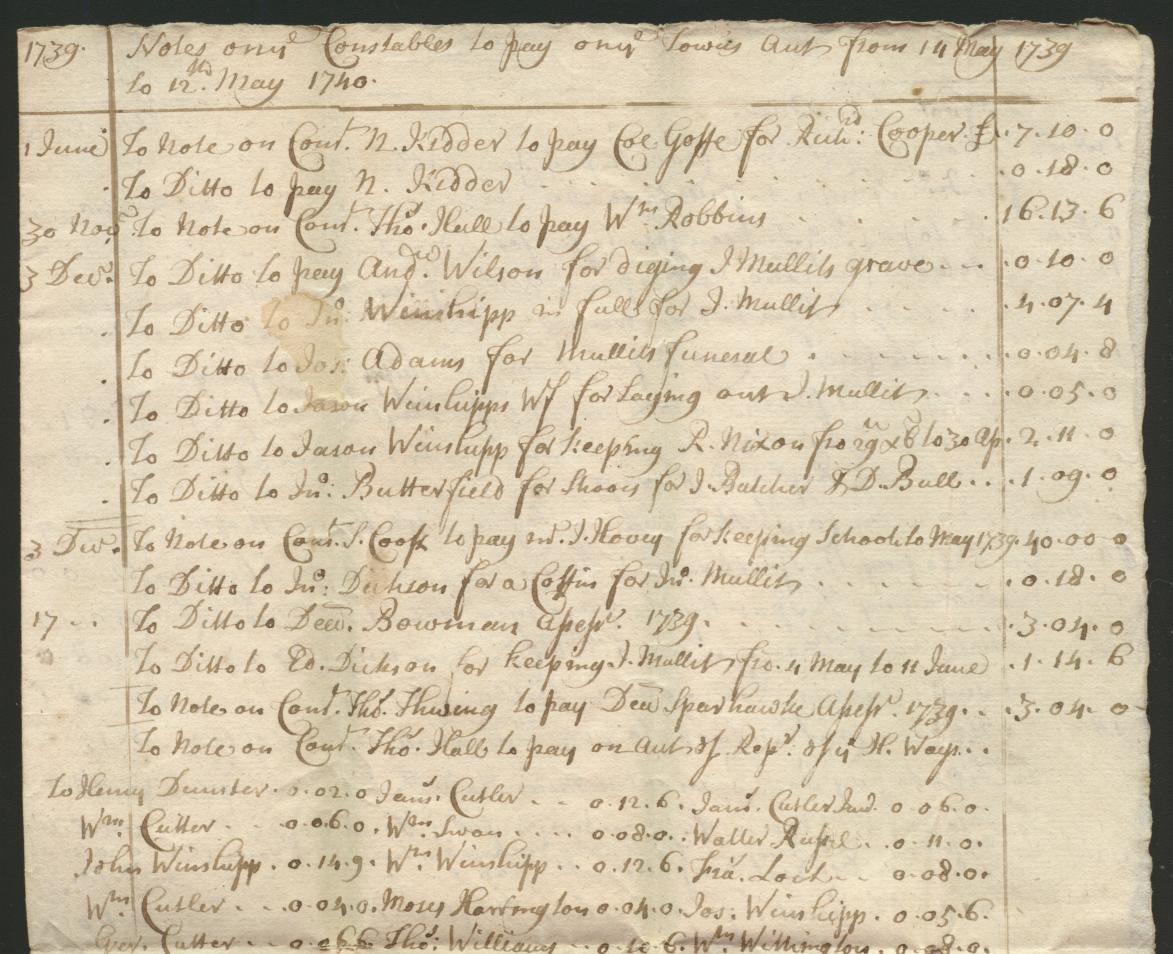 1739. Notes on ye Constables to pay on ye Towns Acct from 14 May 1739
to 12th. May 1740.
1 June To Note on Const. N. Kidder to pay Col Goffe for Richd: Cooper £ 7.10.0
To Ditto to pay N. Kidder 0.18.0
30 Novr To Note on Const. Tho. Hall to pay Wm Robbins 16.13.6
3 Decr. To Ditto to pay Andw. Wilson for diging J Mullits grave 0.10.0
To Ditto to Jno: Winshipp in full for J. Mullit 4.07.4
To Ditto to Jos: Adams for Mullits funeral 0.04.8
To Ditto to Jason Winshipps Wf for Laying out J. Mullit 0.05.0
To Ditto to Jason Winshipp for keeping R. Nixon fro 29 to 30 Ap. 2.11.0
To Ditto to Jno: Butterfield for Shoos for J. Batcher & D. Ball 1.09.0
3 Decr. To Note on Const. S. Cook to pay mr. J. Hovey for keeping School to May 1739. 40.00 0
To Ditto to Jno: Dickson for a Coffin for Jno. Mullit 0.18.0
17 To Ditto to Deacn. Bowman Assessr. 1739. 3.04.0
To Ditto to Ed. Dickson for keeping J. Mullit fro. 4 May to 11 June 1.14.6
To Note on Const. Tho. Thwing to pay Dean Sparhawke Assessr. 1739. 3.04.0
To Note on Const. Tho. Hall to pay on Acct of Repr. of ye H. Ways.
To Henry Dunster. 0.02.0 Jams. Cutler 0.12.6. Jams. Cutler Junr. 0 06.0.
Wm. Cutter 0.06.0. Wm. Swan 0.08.0. Walter Russel 0.11.0.
John Winshipp. 0.14.9. Wm Winshipp 0.12.6. Fra. Lock 0.08.0.
Wm. Cutler 0.04.0. Moses Harrington 0.04.0. Jos: Winshipp. 0.05.6.
Cutter 0.06.6 Tho: Williams 0.10.6. Wm Wittington. 0.08.0.